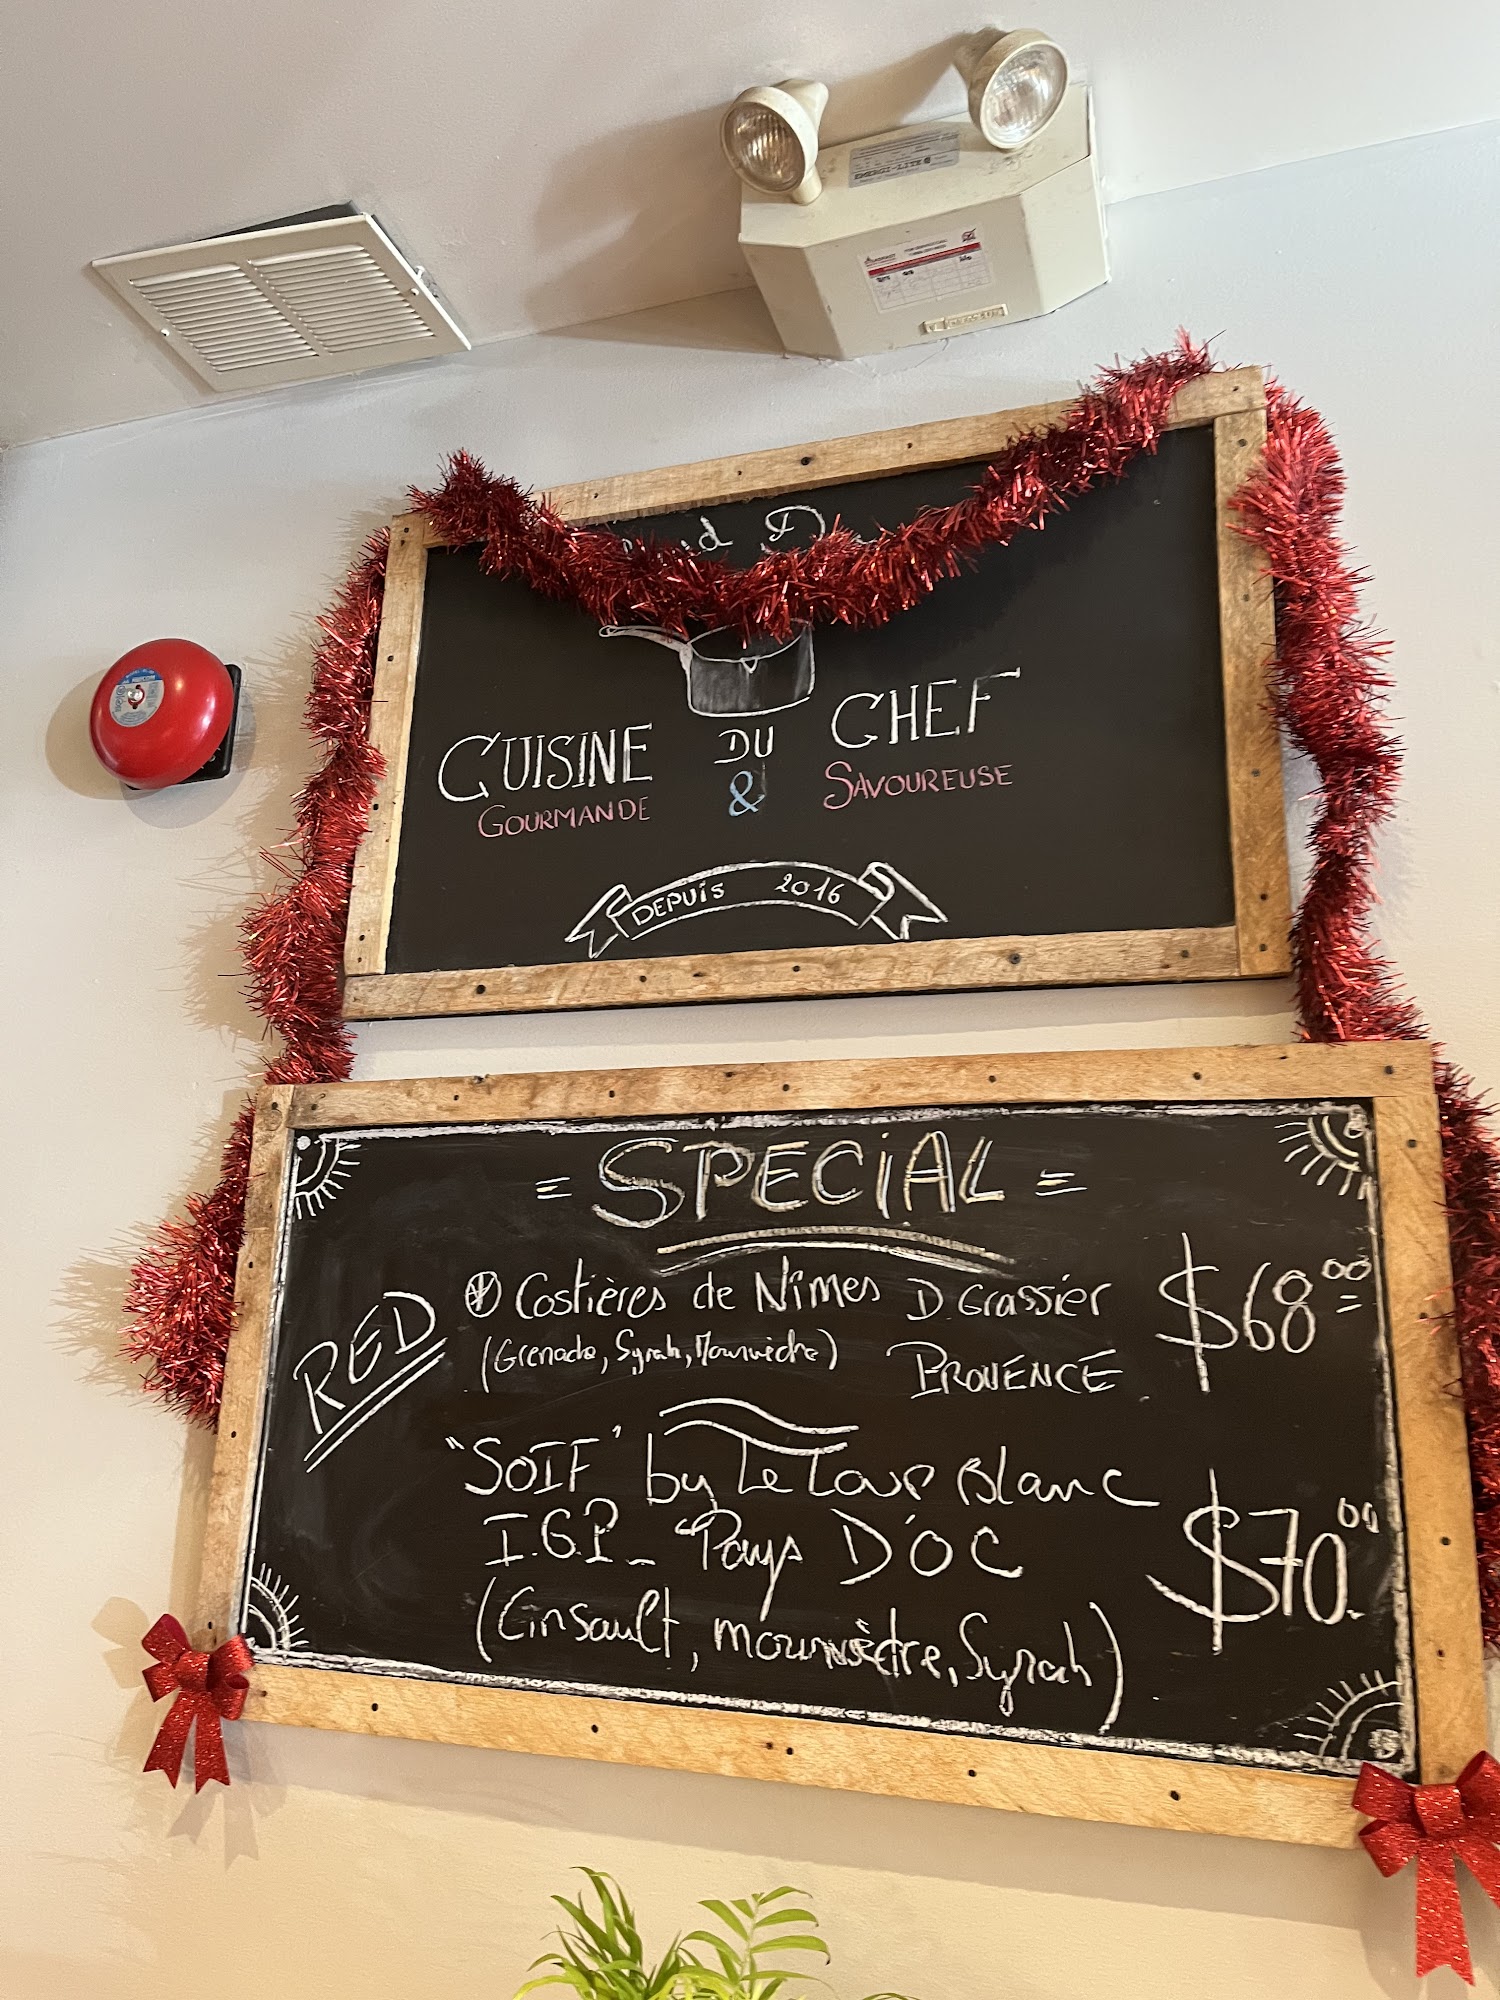 CUISINE DU CHEF
GOURMANDE & SAVOUREUSE
DEPUIS 2016
= SPECIAL =
RED
Costières de Nîmes D. Grassier $68.00
(Grenache, Syrah, Mourvèdre) PROVENCE
"SOIF" by Le Tour Blanc
I.G.P_ Pays D'OC $70.00
(Cinsault, mourvèdre, Syrah)